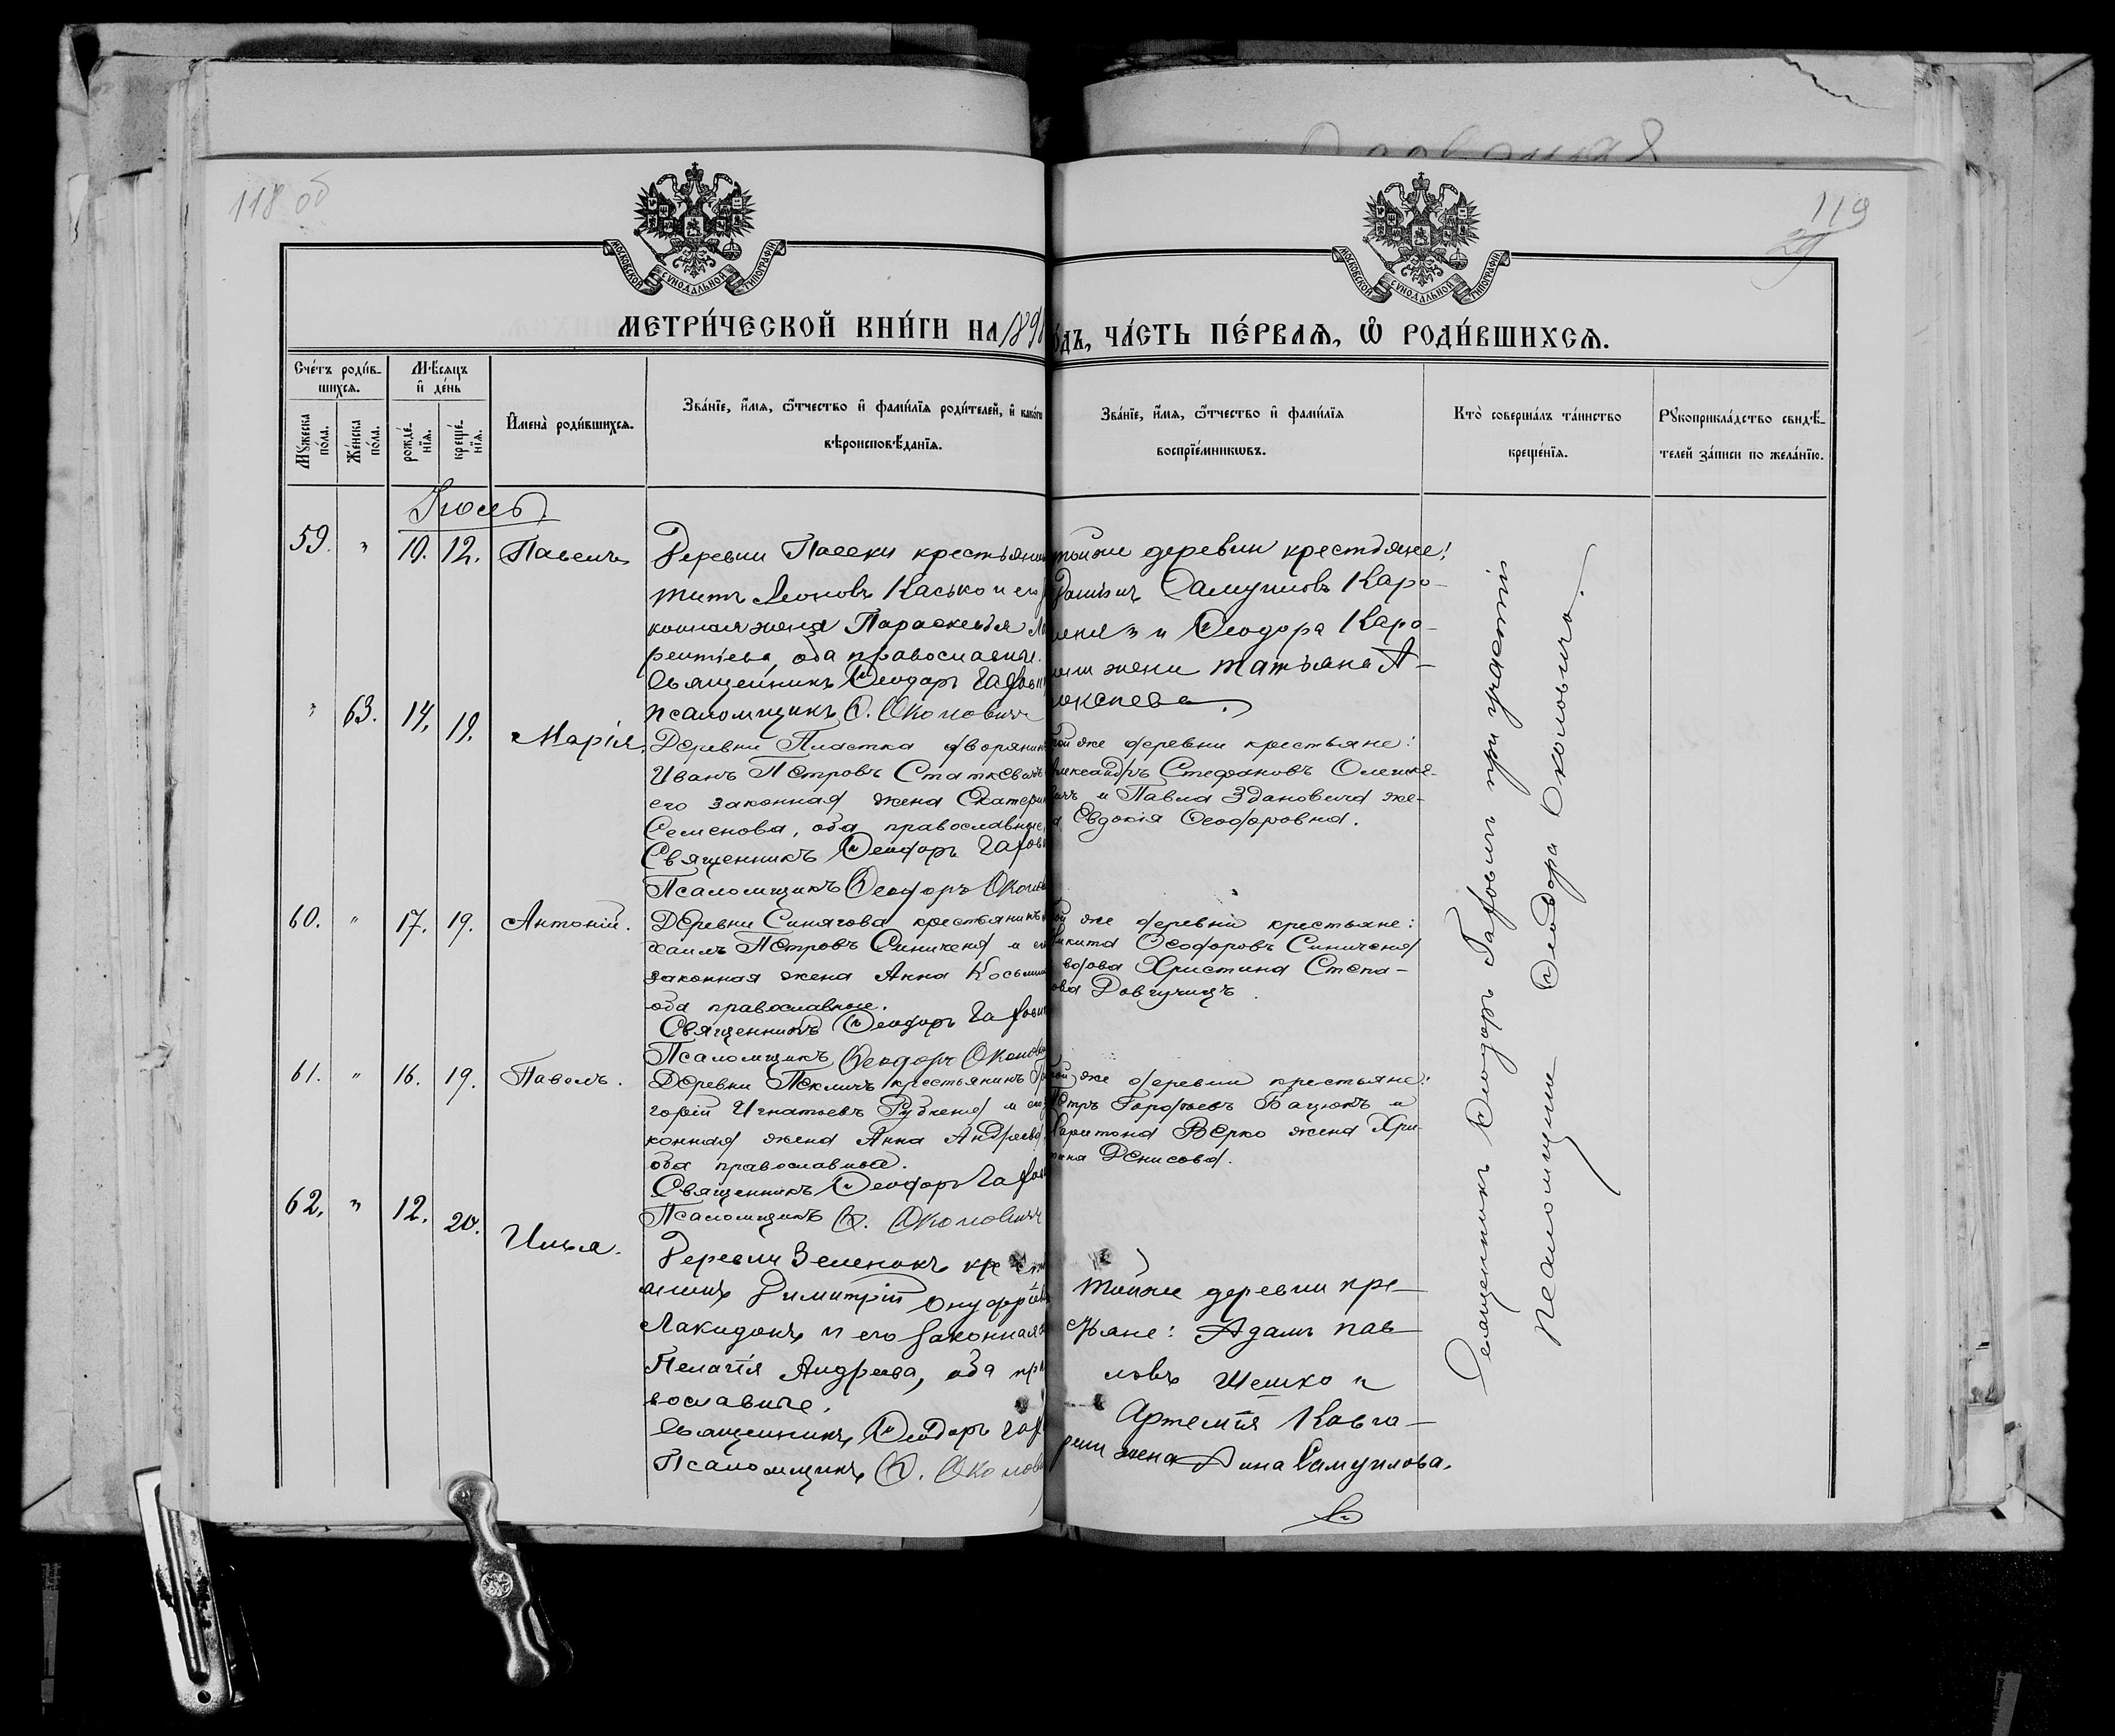 118 об
119
29
МОСКОВСКОЙ СѴНОДАЛЬНОЙ ТИПОГРАФІИ
МОСКОВСКОЙ СѴНОДАЛЬНОЙ ТИПОГРАФІИ
МЕТРИ́ЧЕСКОЙ КНИ́ГИ НА 189
о́дъ, ЧА́СТЬ ПЕ́РВАѦ, Ѡ҆ РОДИ́ВШИХСѦ.
Сче́тъ роди́в-
шихсѧ.
Мꙋ́жеска по́ла.
Же́нска по́ла.
Мѣ́сѧцъ и҆ де́нь
рожде́-
нїѧ.
креще́-
нїѧ.
И҆мена̀ роди́вшихсѧ.
Зва́нїе, и҆́мѧ, ѻ҆́тчество и҆ фами́лїѧ роди́телей, и҆ како́гѡ
вѣроисповѣ́данїѧ.
Зва́нїе, и҆́мѧ, ѻ҆́тчество и҆ фами́лїѧ
воспрїе́мникѡвъ.
Кто̀ соверша́лъ та́инство
креще́нїѧ.
Рꙋкоприкла́дство свидѣ́-
телей за́писи по жела́нїю.
Іюль.
59. " 10. 12. Павелъ
Деревни Пасеки крестьянин
Титъ Леоновъ Касько и его
конная жена Параскевія Ла
рентіева, оба православные.
Священникъ Ѳеодоръ
Псаломщикъ Ѳ. Околовичъ
тойже деревни крестьяне:
Даніилъ Самуиловъ Каро-
и Ѳеодора Каро-
жена Татьяна А-
" 63. 14. 19. Марія.
Деревни Пластка дворянинъ
Иванъ Петровъ Статкевичъ
его законная жена Екатери
Семенова, оба православные,
Священникъ Ѳеодоръ
Псаломщикъ Ѳеодоръ Околов
той же деревни крестьяне:
Александръ Стефановъ Олешке-
вичъ и Павла Здановича же-
а Евдокія Ѳеодоровна.
60. " 17. 19. Антоній.
Деревни Синягова крестьянинъ
хаилъ Петровъ Синиченя и его
законная жена Анна Косьмин
оба православные.
Священникъ Ѳеодоръ
Псаломщикъ Ѳеодоръ Околов
той же деревни крестьяне:
Никита Ѳеодоровъ Синиченя
вдова Христина Степа-
ова Довгучицъ.
61. " 16. 19. Павелъ.
Деревни Пекличъ крестьянинъ Гри
горій Игнатьевъ Рубченя и его
конная жена Анна Андреева,
оба православные.
Священникъ Ѳеодоръ
Псаломщикъ Ѳ. Околовичъ
той же деревни крестьяне:
Петръ Бацюкъ и
Харитона Верко жена Хри-
тина Денисова.
62. " 12. 20. Илья.
Деревни Зеленокъ крестья
Димитрій Онуфріевъ
Лакидонъ и его законная
Пелагія Андреева, оба пра
вославные.
Священникъ Ѳеодоръ
Псаломщикъ Ѳ. Околови
Тойже деревни кре-
стьяне: Адамъ Пав-
ловъ Шешко и
Артемія
жена Анна Самуилова.
Священникъ Ѳеодоръ при участіи
Псаломщика Ѳеодора Околовича.